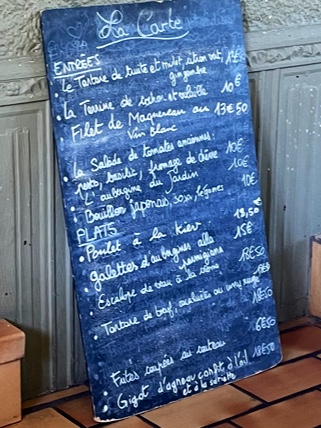 La Carte
ENTRÉES
Le Tartare de truite et citron vert,
gingembre
La Terrine de et volaille 10€
Filet de Maquereau au 13€50
Vin Blanc
La Salade de tomates anciennes: 10€
pesto, basilic, fromage de chèvre
L'aubergine du Jardin 10€
Bouillon japonais, soja, légumes 10€
PLATS
Poulet à la Kiev 18,50€
galettes d'aubergines alla 15€
parmigiana
Escalope de veau à la 18€50
Tartare de bœuf, ou
Frites coupées au couteau 6€50
Gigot d'agneau confit à l'ail 18€50
et à la sarriette